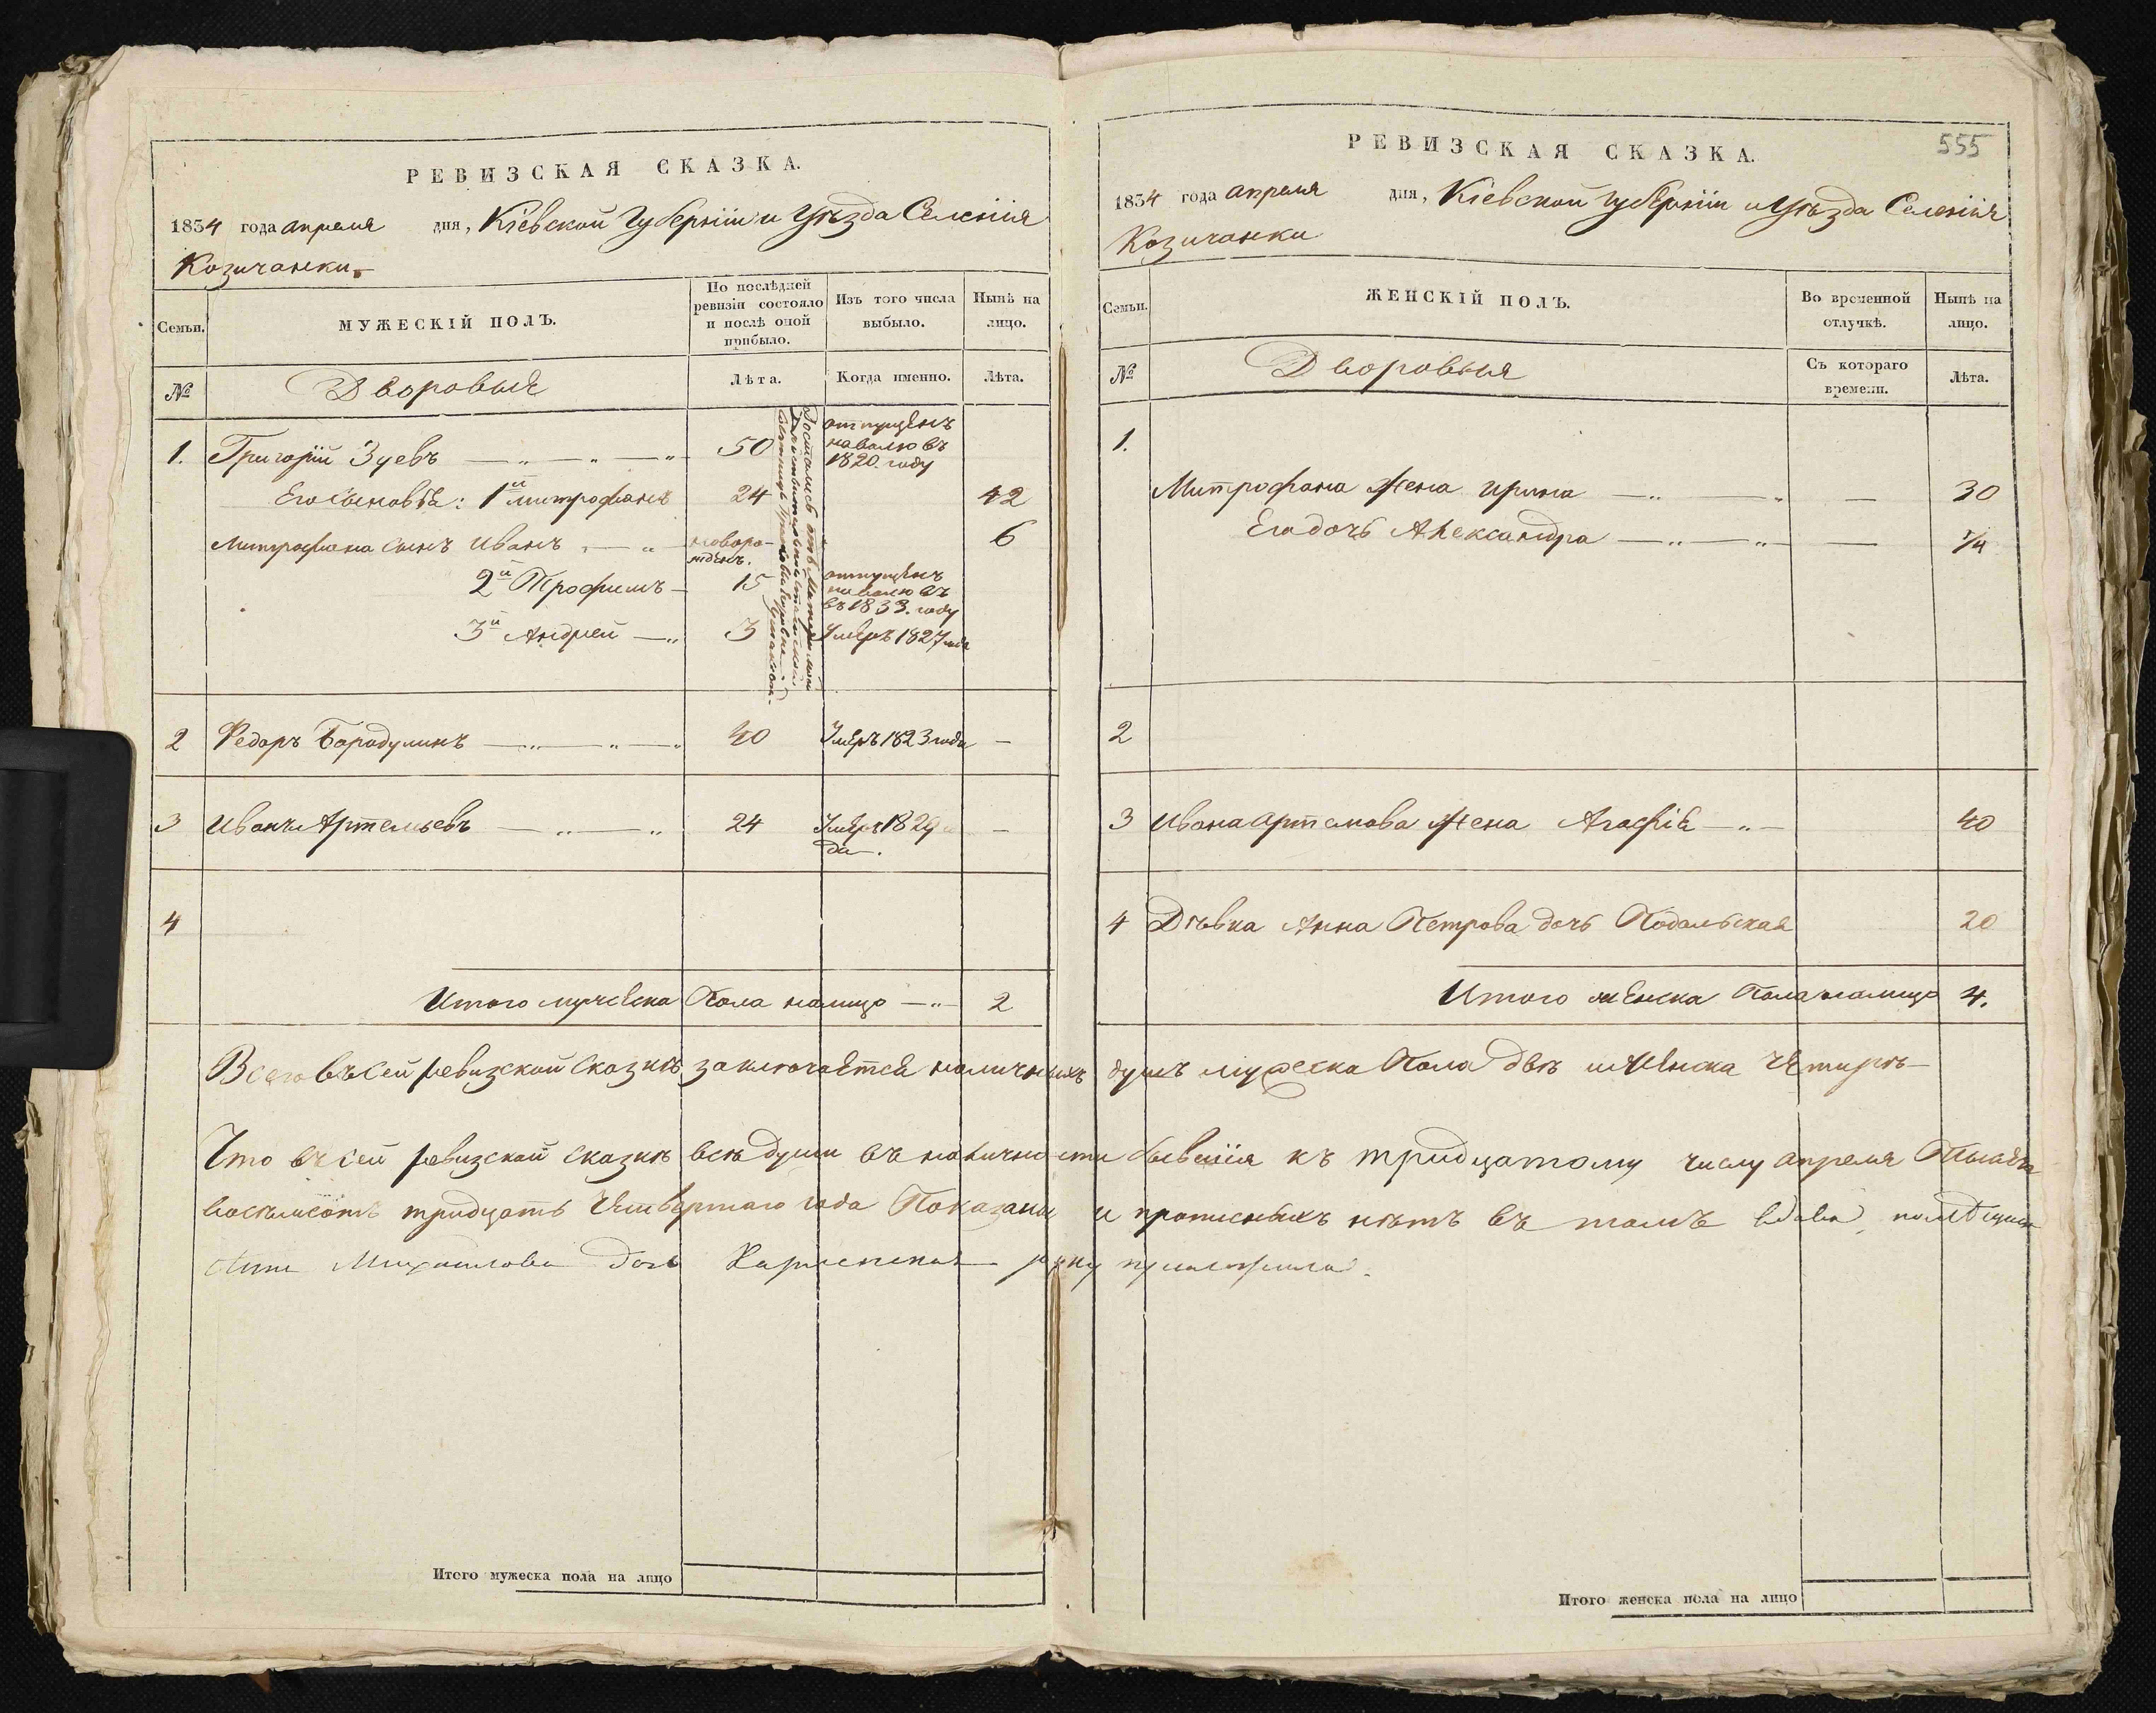 РЕВИЗСКАЯ СКАЗКА.
1834 года апреля дня, Кіевской Губерніи и Уѣзда Селенія
Козичанки
Семьи.
МУЖЕСКІЙ ПОЛЪ.
По послѣдней ревизіи состояло и послѣ оной прибыло.
Изъ того числа выбыло.
Нынѣ на лицо.
№
Дворовыя
Лѣта.
Когда именно.
Лѣта.
1. Григорій Зуевъ 50 отпущенъ на волю въ 1820. году
Его сыновья: 1й Митрофанъ 24 42
Митрофана сынъ Иванъ новорожденъ. 6
2й Трофимъ 15 отпущенъ на волю въ въ 1833. году
3й Андрей 3 Умеръ 1827 года
Достались отъ Матери моей
2 Федоръ Бородулинъ 40 Умеръ 1823 года —
3 Иванъ Артемьевъ 24 Умеръ 1829 года. —
4
Итого мужеска Пола налицо 2
Всего въ сей ревизской сказкѣ заключается наличныхъ
Что въ сей ревизской сказкѣ всѣ души въ наличности
восемьсотъ тридцать Четвертаго года Показаны
Анна Михайлова дочь руку
Итого мужеска пола на лицо
РЕВИЗСКАЯ СКАЗКА.
555
1834 года апреля дня, Кіевской Губерніи и Уѣзда Селенія
Козичанки
Семьи.
ЖЕНСКІЙ ПОЛЪ.
Во временной отлучкѣ.
Нынѣ на лицо.
№
Дворовыя
Съ котораго времени.
Лѣта.
1.
Митрофана Жена Ирина — 30
Его дочь Александра — 3/4
2
3 Ивана Артемова Жена Агафія 40
4 Дѣвка Анна Петрова дочь Подольская 20
Итого женска Пола налицо 4.
душъ мужеска Пола двѣ и женска Четыре
бывшія къ тридцатому числу апреля Тысяча
и прописныхъ нѣтъ въ томъ вдова помѣщица
приложила.
Итого женска пола на лицо